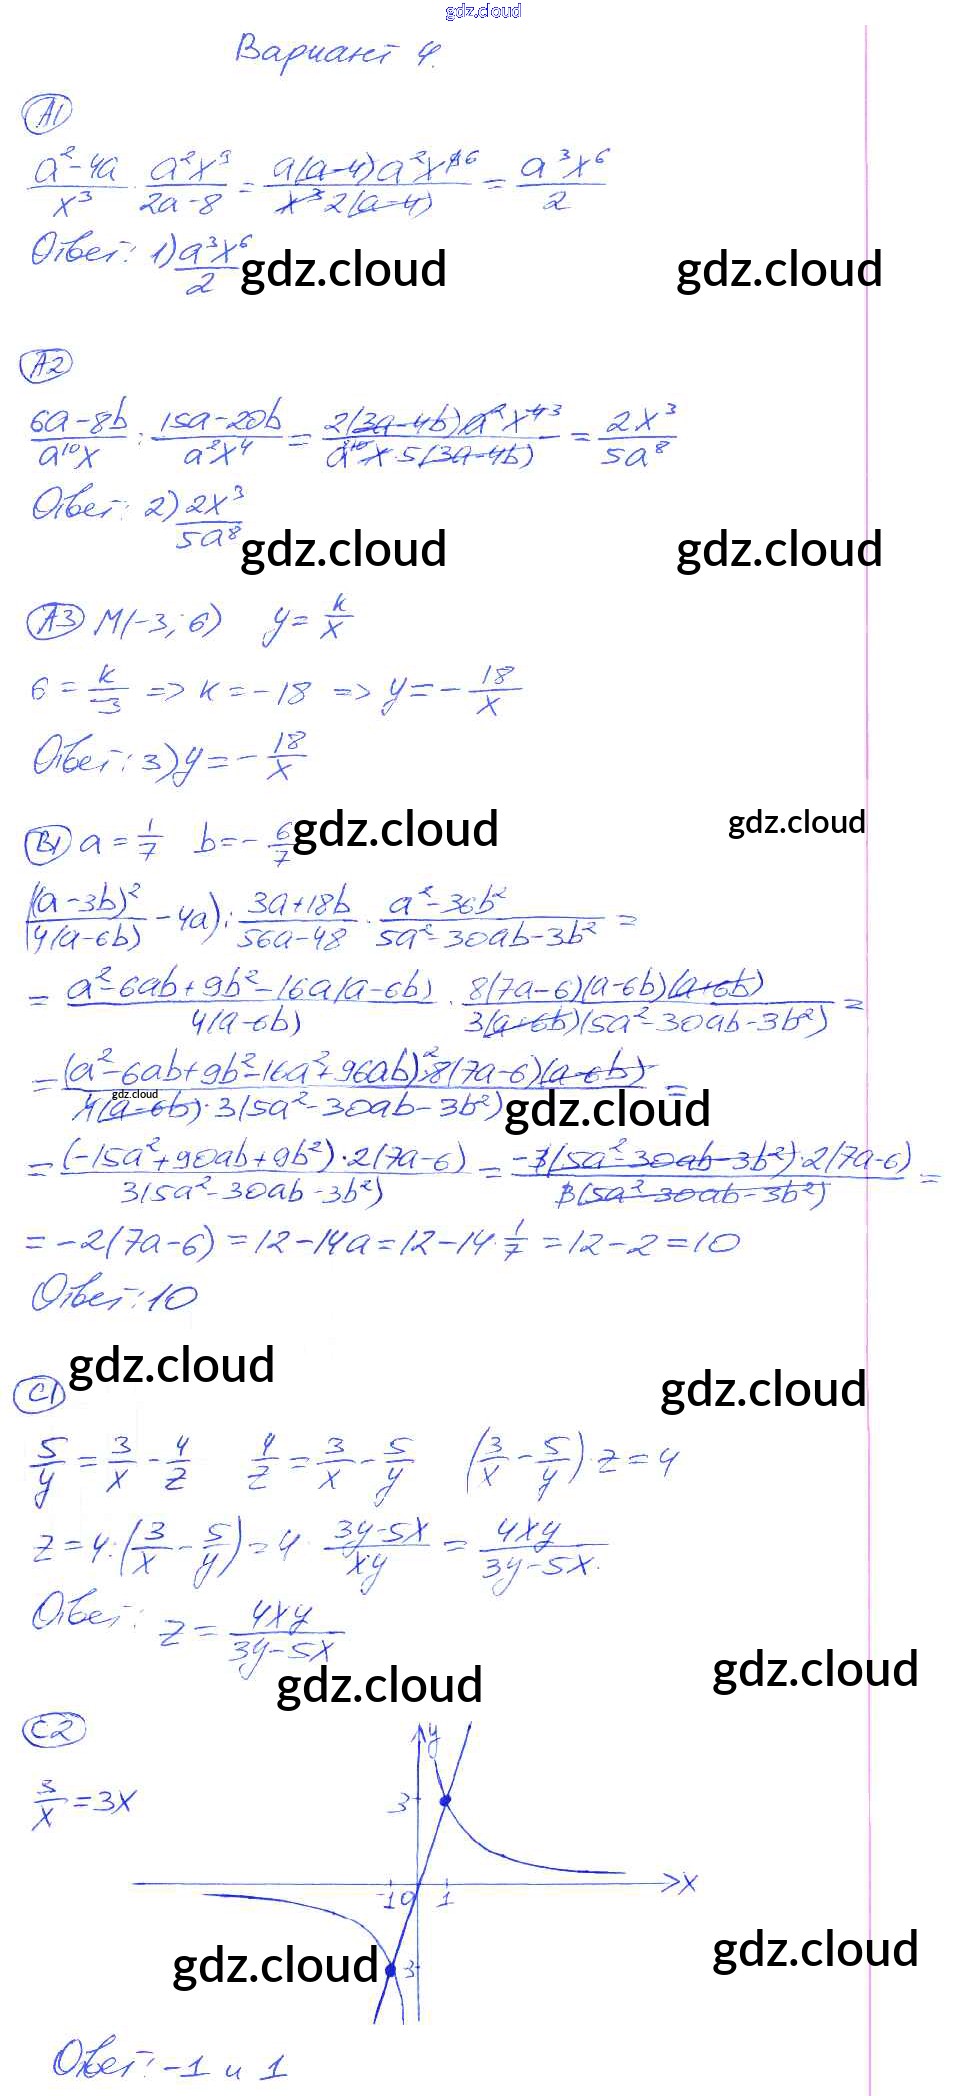 gdz.cloud
Вариант 4.
A1
(a²-4a)/x³ · (a²x⁹)/(2a-8) = (a(a-4)a²x⁶)/(x³2(a-4)) = (a³x⁶)/2
Ответ: 1) (a³x⁶)/2
gdz.cloud gdz.cloud
A2
(6a-8b)/(a¹⁰x) : (15a-20b)/(a²x⁴) = (2(3a-4b)a²x⁴ ³)/(a¹⁰x·5(3a-4b)) = (2x³)/(5a⁸)
Ответ: 2) (2x³)/(5a⁸)
gdz.cloud gdz.cloud
A3 M(-3; 6) y = k/x
6 = k/-3 => k = -18 => y = -18/x
Ответ: 3) y = -18/x
B1 a = 1/7 b = -6/7 gdz.cloud gdz.cloud
((a-3b)²/(4(a-6b)) - 4a) : (3a+18b)/(56a-48) · (a²-36b²)/(5a²-30ab-3b²) =
= (a²-6ab+9b²-16a(a-6b))/(4(a-6b)) · (8(7a-6)(a-6b)(a+6b))/(3(a+6b)(5a²-30ab-3b²)) =
= ((a²-6ab+9b²-16a²+96ab)·²8(7a-6)(a-6b))/(4(a-6b)·3(5a²-30ab-3b²)) =
gdz.cloud gdz.cloud
= ((-15a²+90ab+9b²)·2(7a-6))/(3(5a²-30ab-3b²)) = (-3(5a²-30ab-3b²)·2(7a-6))/(3(5a²-30ab-3b²)) =
= -2(7a-6) = 12-14a = 12-14·1/7 = 12-2 = 10
Ответ: 10
gdz.cloud gdz.cloud
C1
5/y = 3/x - 4/z 4/z = 3/x - 5/y (3/x - 5/y)·z = 4
z = 4:(3/x - 5/y) = 4 · (3y-5x)/(xy) = (4xy)/(3y-5x).
Ответ: z = (4xy)/(3y-5x)
gdz.cloud gdz.cloud
C2
3/x = 3x
y
3
-1 0 1 x
3
gdz.cloud gdz.cloud
Ответ: -1 и 1